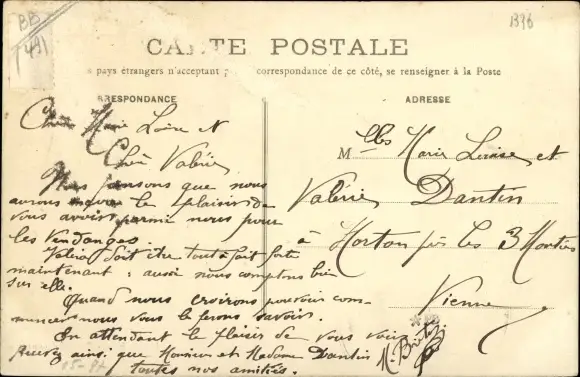 BB
1491
1336
CARTE POSTALE
pays étrangers n'acceptant correspondance de ce côté, se renseigner à la Poste
RRESPONDANCE
ADRESSE
Chère Marie Louise et
Chère Valérie
Nous pensons que nous
aurons le plaisir de
vous avoir parmi nous pour
les Vendanges
Valérie doit être tout à fait forte
maintenant ; aussi nous comptons bien
sur elle.
Quand nous croirons pouvoir com-
mencer nous vous le ferons savoir.
En attendant le plaisir de vous voir
recevez ainsi que Monsieur et Madame Dantin
toutes nos amitiés.
Mlles Marie Louise et
Valérie Dantin
à Morton par les 3 Moutiers
Vienne